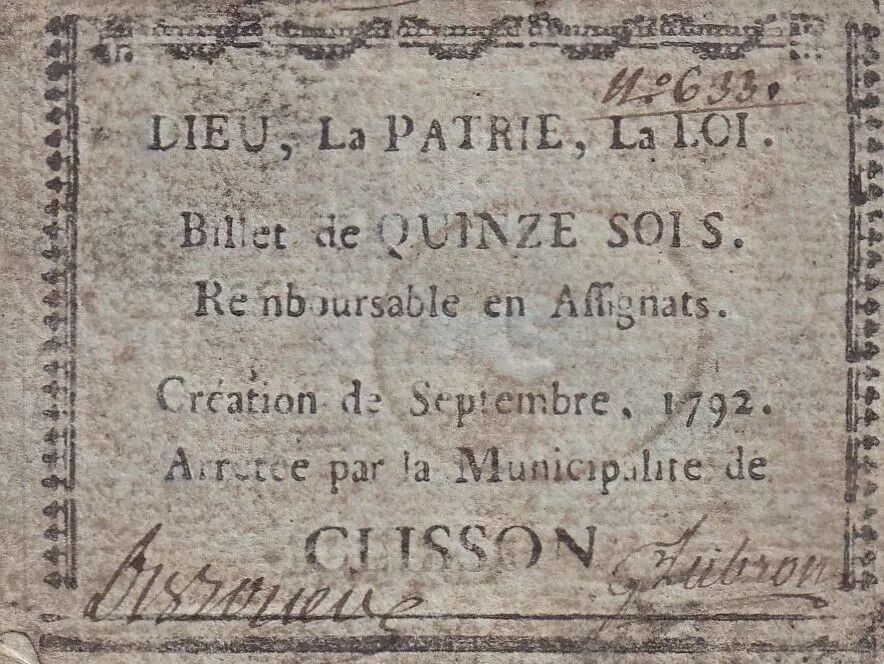 N.º 633.
DIEU, La PATRIE, La LOI.
Billet de QUINZE SOLS.
Remboursable en Aſſignats.
Création de Septembre, 1792.
Arretée par la Municipalité de
CLISSON